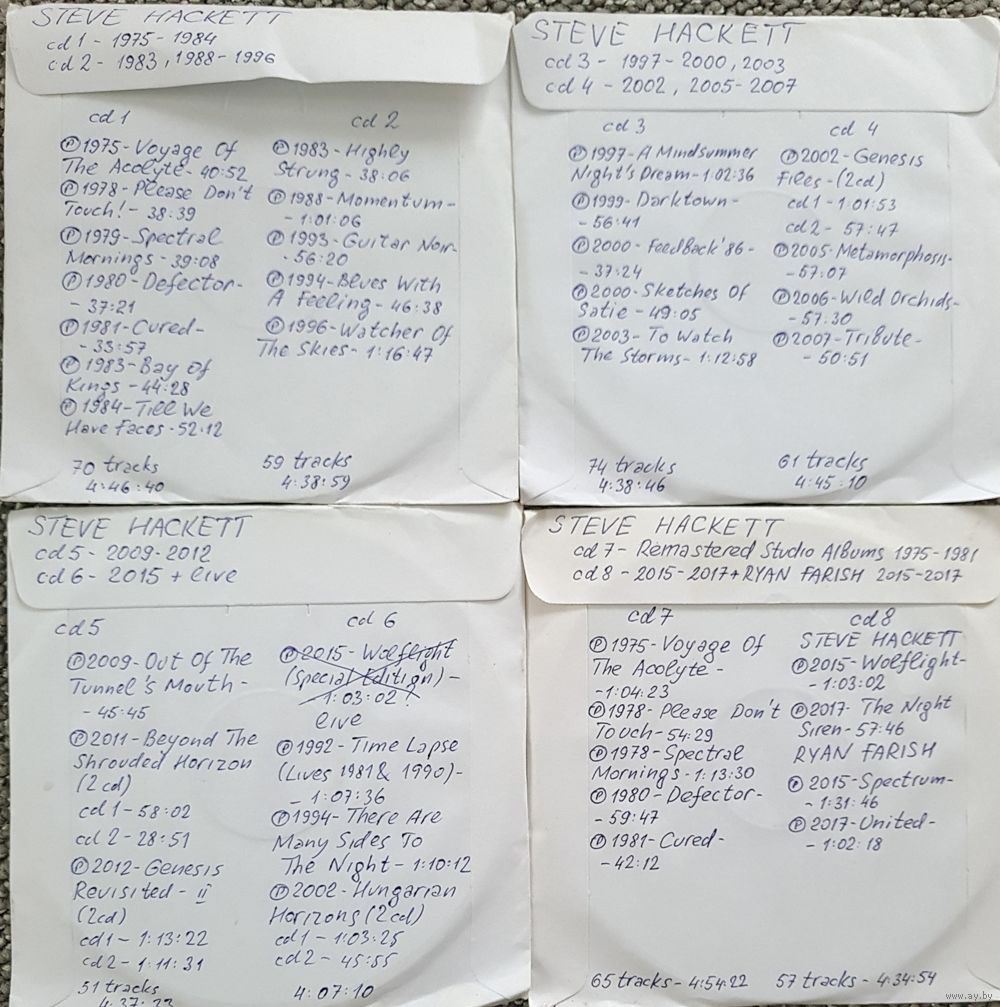 STEVE HACKETT
cd 1 - 1975 - 1984
cd 2 - 1983, 1988 - 1996
cd 1
Ⓟ1975 - Voyage Of
The Acolyte - 40:52
Ⓟ1978 - Please Don't
Touch! - 38:39
Ⓟ1979 - Spectral
Mornings - 39:08
Ⓟ1980 - Defector -
- 37:21
Ⓟ1981 - Cured -
- 35:57
Ⓟ1983 - Bay Of
Kings - 44:28
Ⓟ1984 - Till We
Have Faces - 52:12
70 tracks
4:46:40
cd 2
Ⓟ1983 - Highly
Strung - 38:06
Ⓟ1988 - Momentum -
- 1:01:06
Ⓟ1993 - Guitar Noir -
- 56:20
Ⓟ1994 - Blues With
A Feeling - 46:38
Ⓟ1996 - Watcher Of
The Skies - 1:16:47
59 tracks
4:38:59
STEVE HACKETT
cd 3 - 1997 - 2000, 2003
cd 4 - 2002, 2005 - 2007
cd 3
Ⓟ1997 - A Mindsummer
Night's Dream - 1:02:36
Ⓟ1999 - Darktown -
- 56:41
Ⓟ2000 - FeedBack'86 -
- 37:24
Ⓟ2000 - Sketches Of
Satie - 49:05
Ⓟ2003 - To Watch
The Storms - 1:12:58
74 tracks
4:38:46
cd 4
Ⓟ2002 - Genesis
Files - (2cd)
cd 1 - 1:01:53
cd 2 - 57:47
Ⓟ2005 - Metamorphosis -
- 57:07
Ⓟ2006 - Wild Orchids -
- 57:30
Ⓟ2007 - Tribute -
- 50:51
61 tracks
4:45:10
STEVE HACKETT
cd 5 - 2009 - 2012
cd 6 - 2015 + live
cd 5
Ⓟ2009 - Out Of The
Tunnel's Mouth -
- 45:45
Ⓟ2011 - Beyond The
Shrouded Horizon
(2cd)
cd 1 - 58:02
cd 2 - 28:51
Ⓟ2012 - Genesis
Revisited - II
(2cd)
cd 1 - 1:13:22
cd 2 - 1:11:31
51 tracks
cd 6
Ⓟ2015 - Wolflight
(Special Edition) -
- 1:03:02?
live
Ⓟ1992 - Time Lapse
(Lives 1981 & 1990) -
- 1:07:36
Ⓟ1994 - There Are
Many Sides To
The Night - 1:10:12
Ⓟ2002 - Hungarian
Horizons (2cd)
cd 1 - 1:03:25
cd 2 - 45:55
4:07:10
STEVE HACKETT
cd 7 - Remastered Studio Albums 1975 - 1981
cd 8 - 2015 - 2017 + RYAN FARISH 2015 - 2017
cd 7
Ⓟ1975 - Voyage Of
The Acolyte -
- 1:04:23
Ⓟ1978 - Please Don't
Touch - 54:29
Ⓟ1978 - Spectral
Mornings - 1:13:30
Ⓟ1980 - Defector -
- 59:47
Ⓟ1981 - Cured -
- 42:12
65 tracks - 4:54:22
cd 8
STEVE HACKETT
Ⓟ2015 - Wolflight -
- 1:03:02
Ⓟ2017 - The Night
Siren - 57:46
RYAN FARISH
Ⓟ2015 - Spectrum -
- 1:31:46
Ⓟ2017 - United -
- 1:02:18
57 tracks - 4:34:54
www.ay.by